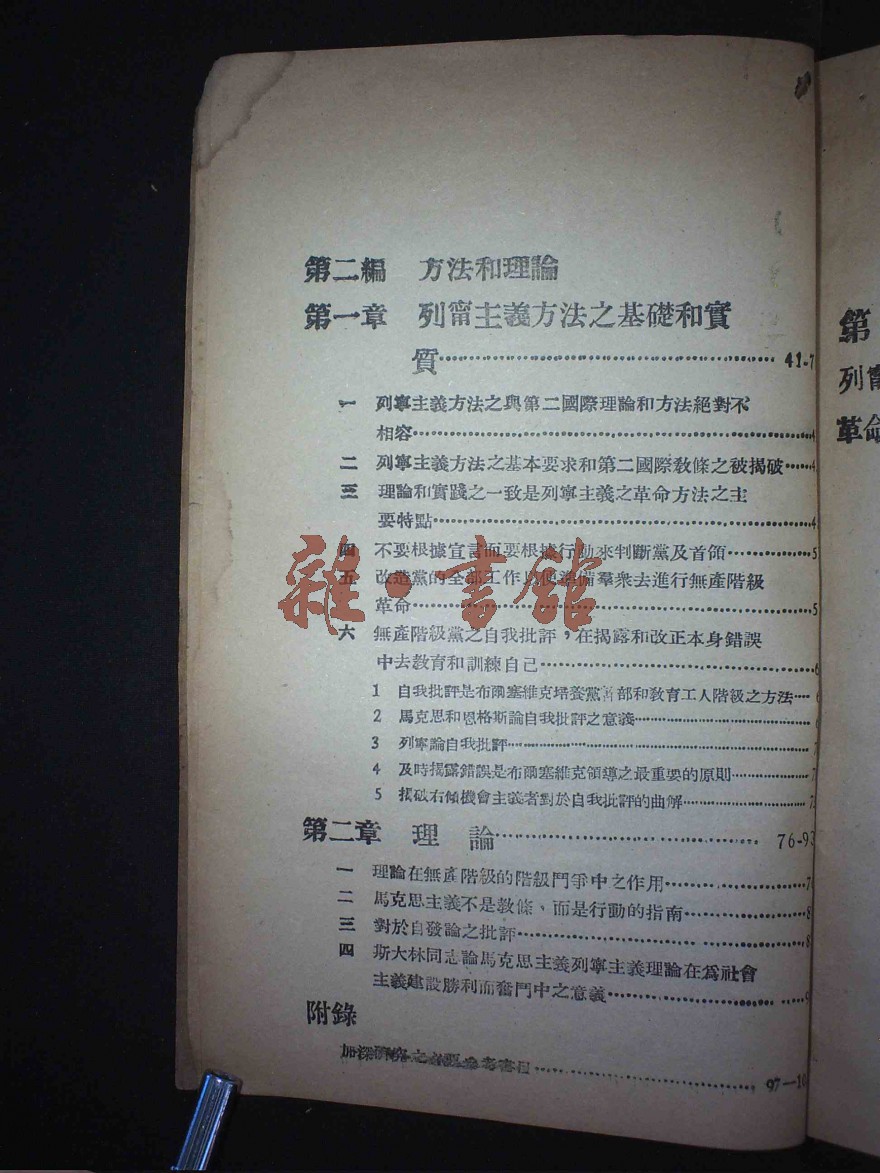 第二編 方法和理論
第一章 列甯主義方法之基礎和實
質 41-7
一 列寧主義方法之與第二國際理論和方法絕對不
相容 4
二 列寧主義方法之基本要求和第二國際敎條之被揭破 4
三 理論和實踐之一致是列寧主義之革命方法之主
要特點 4
四 不要根據宣言而要根據行動來判斷黨及首領 5
五 改造黨的全部工作以便準備羣衆去進行無產階級
革命 5
六 無產階級黨之自我批評，在揭露和改正本身錯誤
中去敎育和訓練自己 6
1 自我批評是布爾塞維克培養黨幹部和敎育工人階級之方法 6
2 馬克思和恩格斯論自我批評之意義 6
3 列寧論自我批評 7
4 及時揭露錯誤是布爾塞維克領導之最重要的原則 7
5 揭破右傾機會主義者對於自我批評的曲解 7
第二章 理 論 76-93
一 理論在無產階級的階級鬥爭中之作用 7
二 馬克思主義不是敎條、而是行動的指南 8
三 對於自發論之批評 8
四 斯大林同志論馬克思主義列寧主義理論在爲社會
主義建設勝利而奮鬥中之意義 9
附錄
加深研究之必要參考書目 97—10
第
列甯
革命
雜·書館